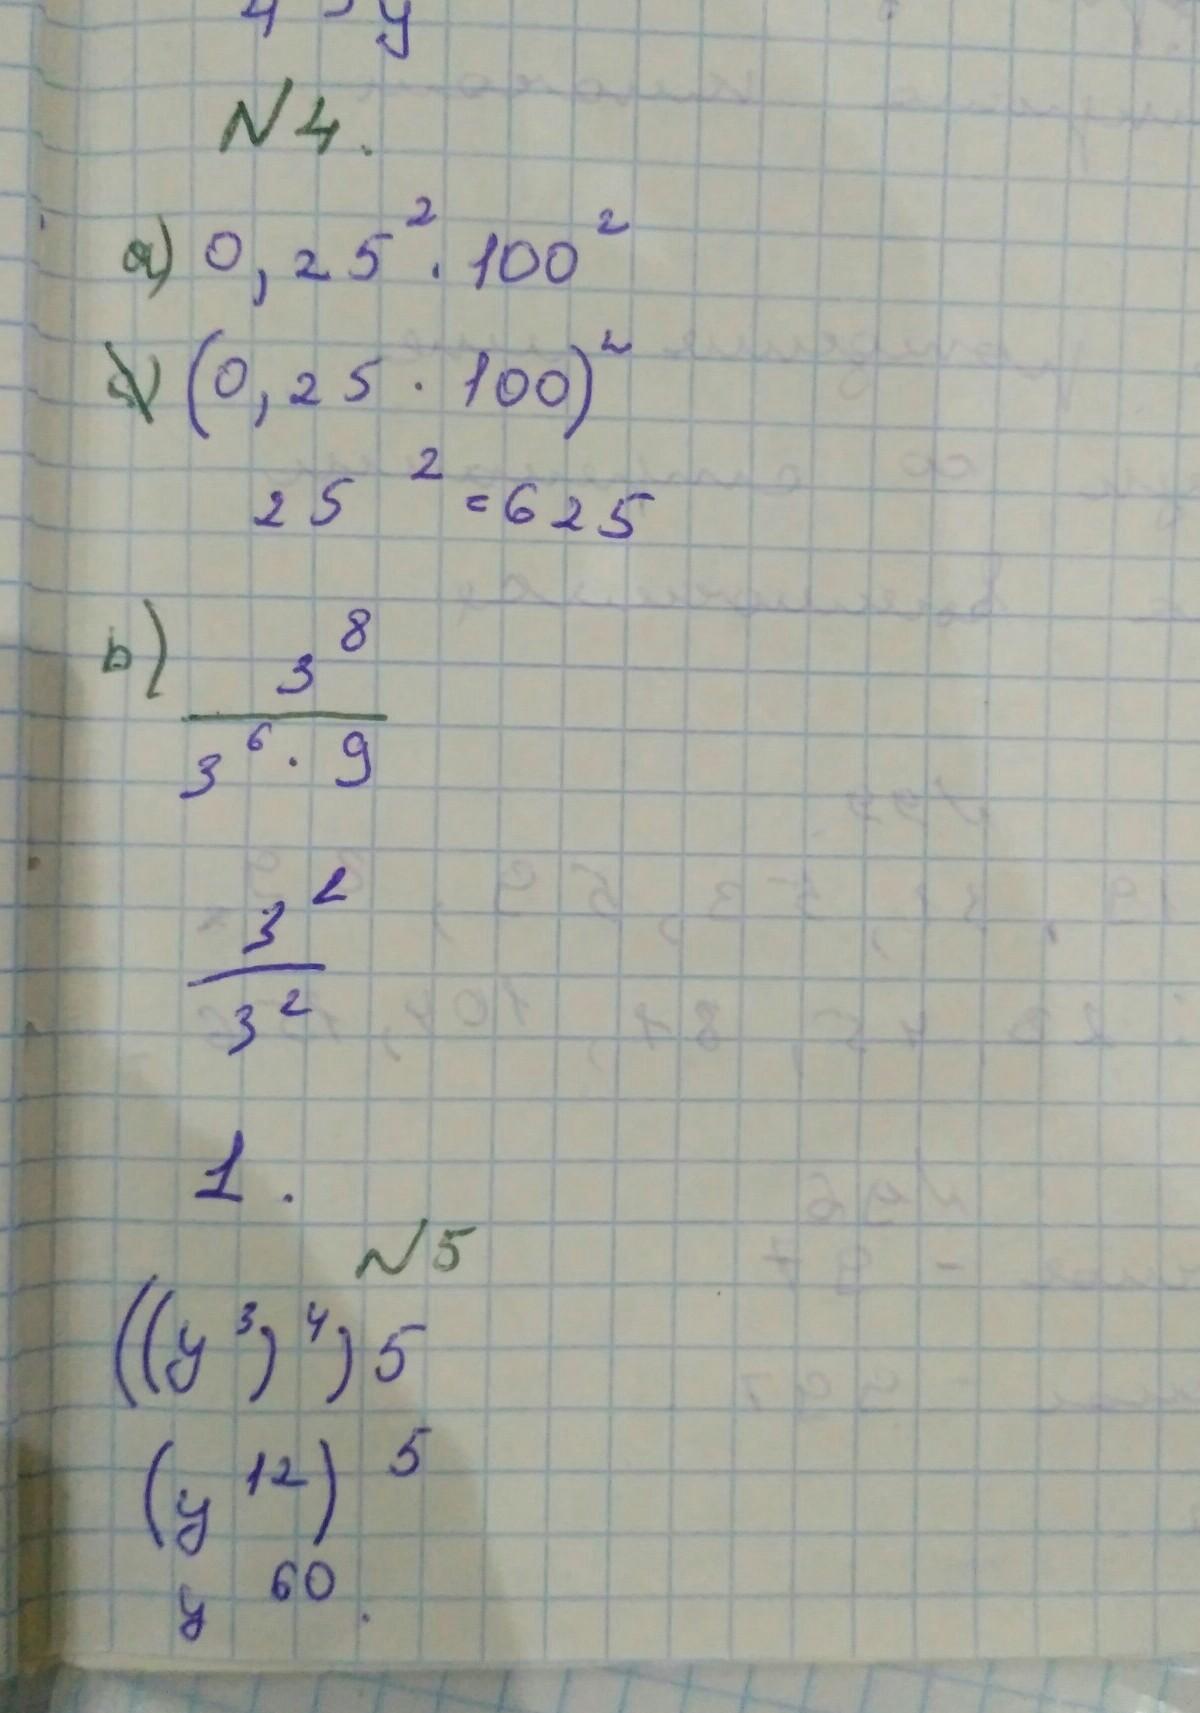 N4.
a) 0,25² · 100²
(0,25 · 100)²
25² = 625
b) 3⁸
3⁶ · 9
3²
3²
1.
N5
((y³)⁴)5
(y¹²)⁵
y⁶⁰.